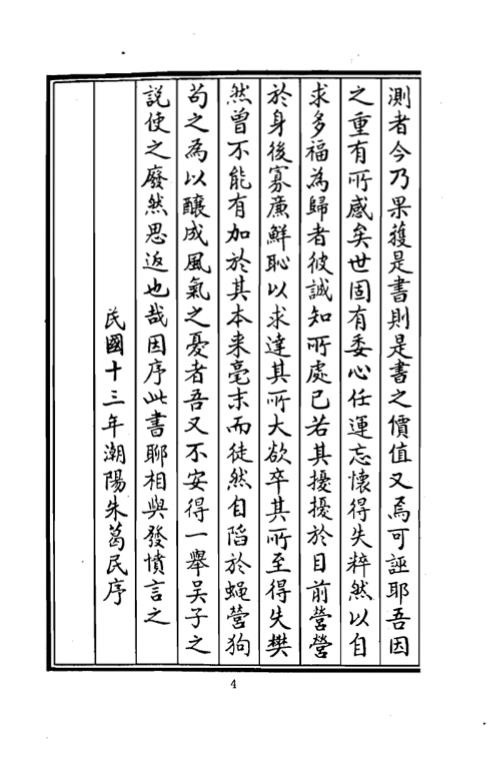 測者今乃果獲是書則是書之價值又焉可誣耶吾因
之重有所感矣世固有委心任運忘懷得失粹然以自
求多福為歸者彼誠知所處已若其擾擾於目前營營
於身後寡廉鮮恥以求達其所大欲卒其所至得失樊
然曾不能有加於其本来毫末而徒然自陷於蝇營狗
茍之為以釀成風氣之憂者吾又不安得一舉吴子之
説使之廢然思返也哉因序此書聊相與發憤言之
民國十三年潮陽朱葛民序
4